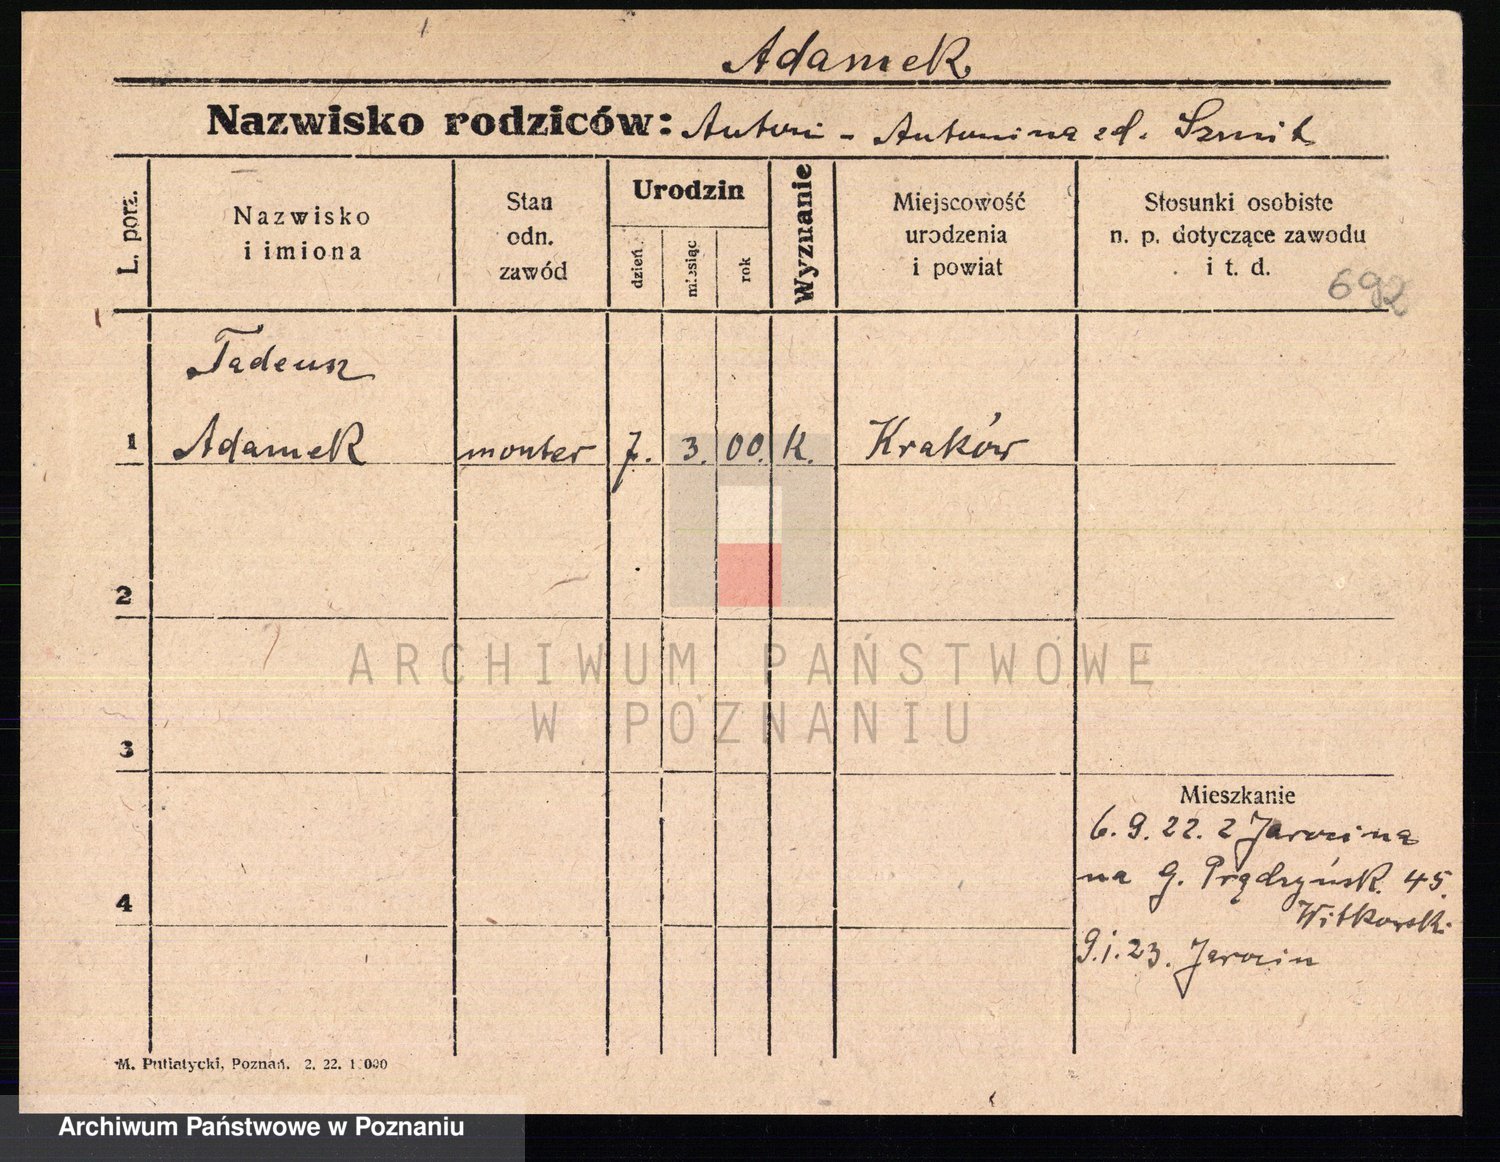 Adamek
Nazwisko rodziców: Antoni - Antonina zd. Szmit
L. porz.
Nazwisko
i imiona
Stan
odn.
zawód
Urodzin
dzień
miesiąc
rok
Wyznanie
Miejscowość
urodzenia
i powiat
Stosunki osobiste
n. p. dotyczące zawodu
i t. d.
692
Tadeusz
1 Adamek monter 7. 3. 00. K. Kraków
2
3
4
Mieszkanie
6. 9. 22. z Jarocina
na G. Prądzyńsk. 45.
Witkowski
9.1.23. Jarocin
M. Putiatycki, Poznań. 2. 22. 1.000
ARCHIWUM PAŃSTWOWE
W POZNANIU
Archiwum Państwowe w Poznaniu